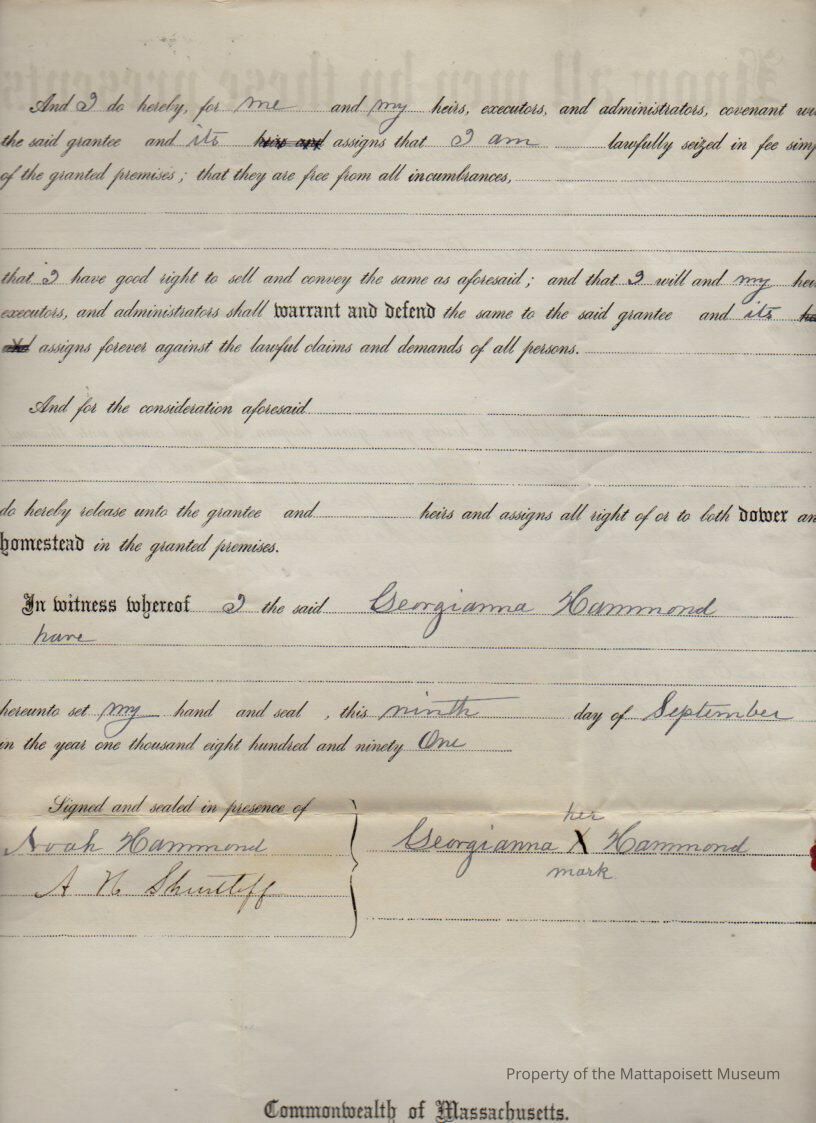 Know all men by these presents
And I do hereby, for me and my heirs, executors, and administrators, covenant wi
the said grantee and its heirs and assigns that I am lawfully seized in fee simp
of the granted premises; that they are free from all incumbrances,
that I have good right to sell and convey the same as aforesaid; and that I will and my hei
executors, and administrators shall warrant and defend the same to the said grantee and its he
and assigns forever against the lawful claims and demands of all persons.
And for the consideration aforesaid
do hereby release unto the grantee and heirs and assigns all right of or to both dower an
homestead in the granted premises.
In witness whereof I the said Georgianna Hammond
have
hereunto set my hand and seal , this ninth day of September
in the year one thousand eight hundred and ninety One
Signed and sealed in presence of
her
Noah Hammond Georgianna X Hammond
mark
A N Shurtleff
Property of the Mattapoisett Museum
Commonwealth of Massachusetts.